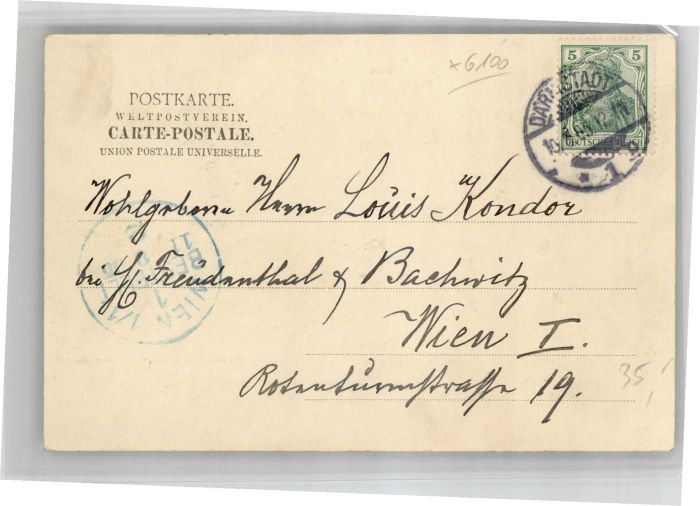 *6100
5 5
DEUTSCHES REICH
DARMSTADT
1
POSTKARTE.
WELTPOSTVEREIN.
CARTE-POSTALE.
UNION POSTALE UNIVERSELLE.
Wohlgeboren Herrn Louis Kondor
bei H. Freudenthal & Bachwitz
Wien I.
Rotenturmstrasse 19.
35,
WIEN 1/1